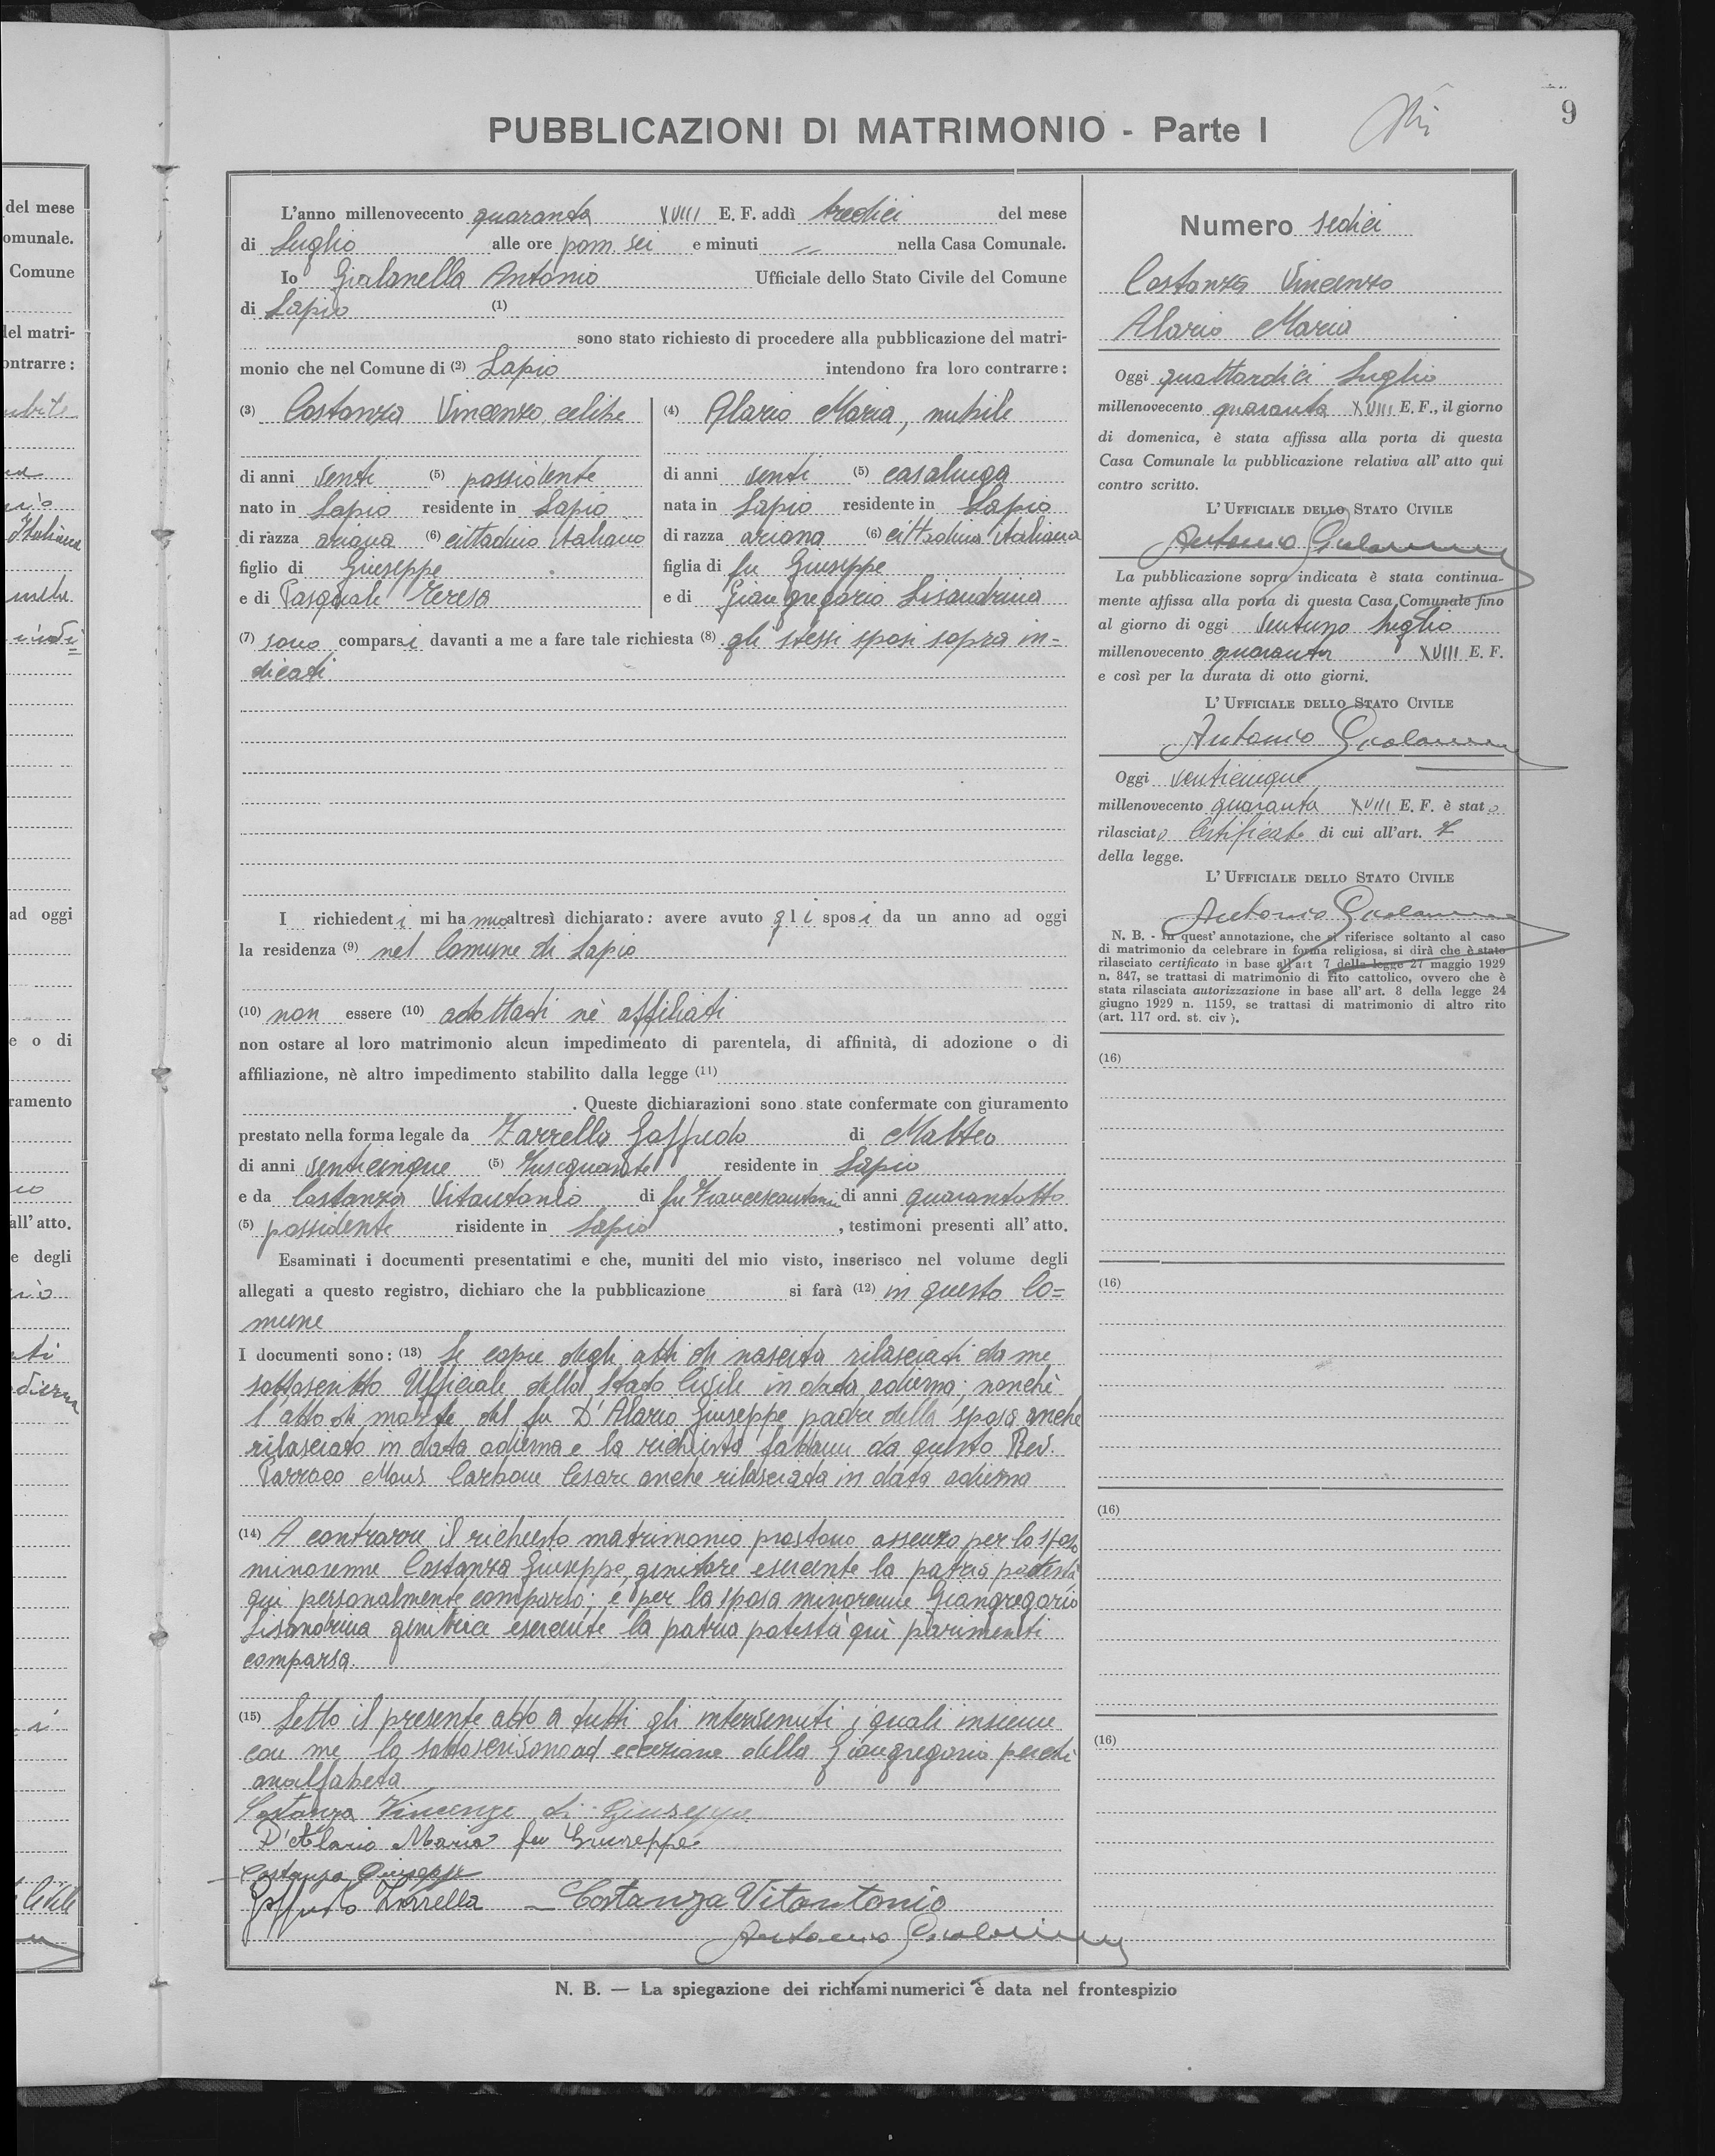 del mese
omunale.
Comune
del matri-
ontrarre:
Italiana
ad oggi
e o di
ramento
all'atto.
e degli
Civile
9
PUBBLICAZIONI DI MATRIMONIO - Parte I
L'anno millenovecento quaranta XVIII E. F. addì tredici del mese
di Luglio alle ore pom. sei e minuti = nella Casa Comunale.
Io Gialanella Antonio Ufficiale dello Stato Civile del Comune
di Lapio (1)
sono stato richiesto di procedere alla pubblicazione del matri-
monio che nel Comune di (2) Lapio intendono fra loro contrarre:
(3) Costanza Vincenzo, celibe
di anni venti (5) possidente
nato in Lapio residente in Lapio
di razza ariana (6) cittadino italiano
figlio di Giuseppe
e di Pasquale Teresa
(4) Alario Maria, nubile
di anni venti (5) casalinga
nata in Lapio residente in Lapio
di razza ariana (6) cittadina italiana
figlia di fu Giuseppe
e di Giangregorio Lisandrina
(7) sono comparsi davanti a me a fare tale richiesta (8) gli stessi sposi sopra in=
dicati
I richiedenti mi hanno altresì dichiarato: avere avuto gli sposi da un anno ad oggi
la residenza (9) nel Comune di Lapio
(10) non essere (10) adottati nè affiliati
non ostare al loro matrimonio alcun impedimento di parentela, di affinità, di adozione o di
affiliazione, nè altro impedimento stabilito dalla legge (11)
. Queste dichiarazioni sono state confermate con giuramento
prestato nella forma legale da Zarrella Goffredo di Matteo
di anni venticinque (5) Insegnante residente in Lapio
e da Costanza Vitantonio di fu Francescantonio di anni quarantotto
(5) possidente risidente in Lapio , testimoni presenti all'atto.
Esaminati i documenti presentatimi e che, muniti del mio visto, inserisco nel volume degli
allegati a questo registro, dichiaro che la pubblicazione si farà (12) in questo Co=
mune
I documenti sono: (13) Le copie degli atti di nascita rilasciati da me
sottoscritto Ufficiale dello Stato Civile in data odierna; nonchè
l'atto di morte del fu D'Alario Giuseppe padre della sposa anche
rilasciato in data odierna e la richiesta fattami da questo Rev.
Parroco Mons. Carbone Cesare anche rilasciata in data odierna
(14) A contrarre il richiesto matrimonio prestano assenso per lo sposo
minorenne Costanza Giuseppe, genitore esercente la patria potestà
qui personalmente comparso; e per la sposa minorenne Giangregorio
Lisandrina genitrice esercente la patria potestà qui parimenti
comparsa.
(15) Letto il presente atto a tutti gli intervenuti i quali insieme
con me lo sottoscrivono ad eccezione della Giangregorio perchè
analfabeta
Costanza Vincenzo di Giuseppe
D'Alario Maria fu Giuseppe
Costanza Giuseppe
Goffredo Zarrella - Costanza Vitantonio
Antonio Gialanella
Numero sedici
Costanza Vincenzo
Alario Maria
Oggi quattordici Luglio
millenovecento quaranta XVIII E. F., il giorno
di domenica, è stata affissa alla porta di questa
Casa Comunale la pubblicazione relativa all'atto qui
contro scritto.
L'UFFICIALE DELLO STATO CIVILE
Antonio Gialanella
La pubblicazione sopra indicata è stata continua-
mente affissa alla porta di questa Casa Comunale fino
al giorno di oggi ventuno luglio
millenovecento quaranta XVIII E. F.
e così per la durata di otto giorni.
L'UFFICIALE DELLO STATO CIVILE
Antonio Gialanella
Oggi venticinque
millenovecento quaranta XVIII E. F. è stato
rilasciato Certificato di cui all'art. 7
della legge.
L'UFFICIALE DELLO STATO CIVILE
Antonio Gialanella
N. B. - In quest'annotazione, che si riferisce soltanto al caso
di matrimonio da celebrare in forma religiosa, si dirà che è stato
rilasciato certificato in base all'art 7 della legge 27 maggio 1929
n. 847, se trattasi di matrimonio di rito cattolico, ovvero che è
stata rilasciata autorizzazione in base all'art. 8 della legge 24
giugno 1929 n. 1159, se trattasi di matrimonio di altro rito
(art. 117 ord. st. civ).
(16)
(16)
(16)
(16)
N. B. — La spiegazione dei richiami numerici è data nel frontespizio